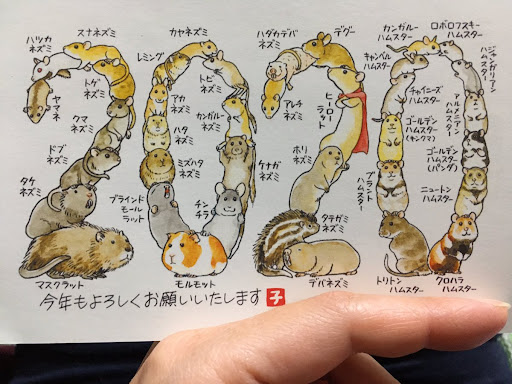 ハツカネズミ
スナネズミ
トゲネズミ
ヤマネ
クマネズミ
ドブネズミ
タケネズミ
マスクラット
カヤネズミ
レミング
トビネズミ
アカネズミ
カンガルーネズミ
ハタネズミ
ミズハタネズミ
ブラインドモールラット
チンチラ
モルモット
ハダカデバネズミ
デグー
アレチネズミ
ヒーローラット
ホリネズミ
ケナガネズミ
タテガミネズミ
デバネズミ
カンガルーハムスター
ロボロフスキーハムスター
キャンベルハムスター
ジャンガリアンハムスター
チャイニーズハムスター
アルメニアンハムスター
ゴールデンハムスター(キンクマ)
ゴールデンハムスター(パンダ)
ブラントハムスター
ニュートンハムスター
トリトンハムスター
クロハラハムスター
今年もよろしくお願いいたします 子